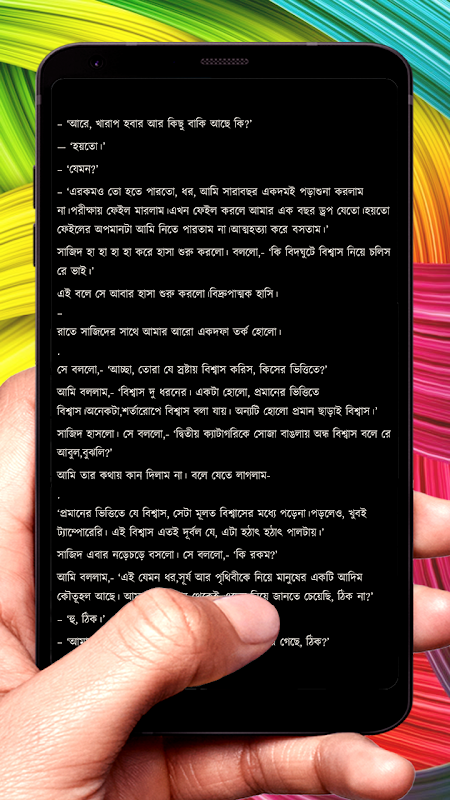 – ‘আরে, খারাপ হবার আর কিছু বাকি আছে কি?’
— ‘হয়তো।’
– ‘যেমন?’
– ‘এরকমও তো হতে পারতো, ধর, আমি সারাবছর একদমই পড়াশুনা করলাম
না।পরীক্ষায় ফেইল মারলাম।এখন ফেইল করলে আমার এক বছর ড্রপ যেতো।হয়তো
ফেইলের অপমানটা আমি নিতে পারতাম না।আত্মহত্যা করে বসতাম।’
সাজিদ হা হা হা হা করে হাসা শুরু করলো। বললো,- ‘কি বিদঘুটে বিশ্বাস নিয়ে চলিস
রে ভাই।’
এই বলে সে আবার হাসা শুরু করলো।বিদ্রুপাত্মক হাসি।
–
রাতে সাজিদের সাথে আমার আরো একদফা তর্ক হোলো।
.
সে বললো,- ‘আচ্ছা, তোরা যে স্রষ্টায় বিশ্বাস করিস, কিসের ভিত্তিতে?’
আমি বললাম,- ‘বিশ্বাস দু ধরনের। একটা হোলো, প্রমানের ভিত্তিতে
বিশ্বাস।অনেকটা,শর্তারোপে বিশ্বাস বলা যায়। অন্যটি হোলো প্রমান ছাড়াই বিশ্বাস।’
সাজিদ হাসলো। সে বললো,- ‘দ্বিতীয় ক্যাটাগরিকে সোজা বাঙলায় অন্ধ বিশ্বাস বলে রে
আবুল,বুঝলি?’
আমি তার কথায় কান দিলাম না। বলে যেতে লাগলাম-
.
‘প্রমানের ভিত্তিতে যে বিশ্বাস, সেটা মূলত বিশ্বাসের মধ্যে পড়েনা।পড়লেও, খুবই
ট্যাম্পোরেরি। এই বিশ্বাস এতই দূর্বল যে, এটা হঠাৎ হঠাৎ পালটায়।’
সাজিদ এবার নড়েচড়ে বসলো। সে বললো,- ‘কি রকম?’
আমি বললাম,- ‘এই যেমন ধর,সূর্য আর পৃথিবীকে নিয়ে মানুষের একটি আদিম
কৌতূহল আছে। থেকেই নিয়ে জানতে চেয়েছি, ঠিক না?’
– ‘হু, ঠিক।’
– গেছে, ঠিক?’